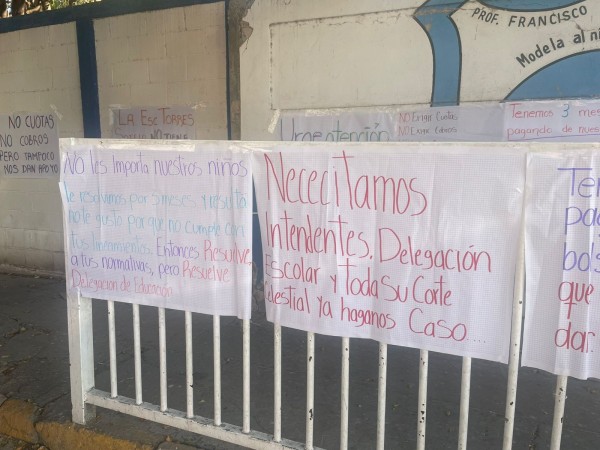 PROF. FRANCISCO
Modela al ni
NO CUOTAS
NO COBROS
PERO TAMPOCO
NOS DAN APOYO
LA ESC TORRES
NO TIENE
Urge atención
NO Exigir Cuotas
NO Exigir Cobros
Tenemos 3 mes
pagando de nues
NO les Importa nuestros niños
Te resolvimos por 3 meses y resulta
no te gusto porque no cumple con
tus lineamientos. Entonces Resuelve
a tus normativas, pero Resuelve
Delegacion de Educación
Nececitamos
Intendentes, Delegación
Escolar y toda Su Corte
Celestial ya haganos Caso...
Ten
pag
bols
que
dar.